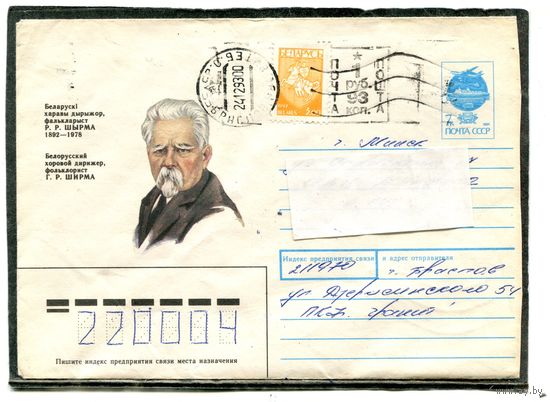 Беларускі
харавы дырыжор,
фалькларыст
Р. Р. ШЫРМА
1892—1978
Белорусский
хоровой дирижер,
фольклорист
Г. Р. ШИРМА
24129300
БЕЛАРУСЬ
ПОШТА
1
руб.
93
коп.
ПОЧТА
7к
ПОЧТА СССР
г. Минск
Индекс предприятия связи и адрес отправителя
211970 г. Браслав
ул Дзержинского 54
220004
Пишите индекс предприятия связи места назначения
ay.by